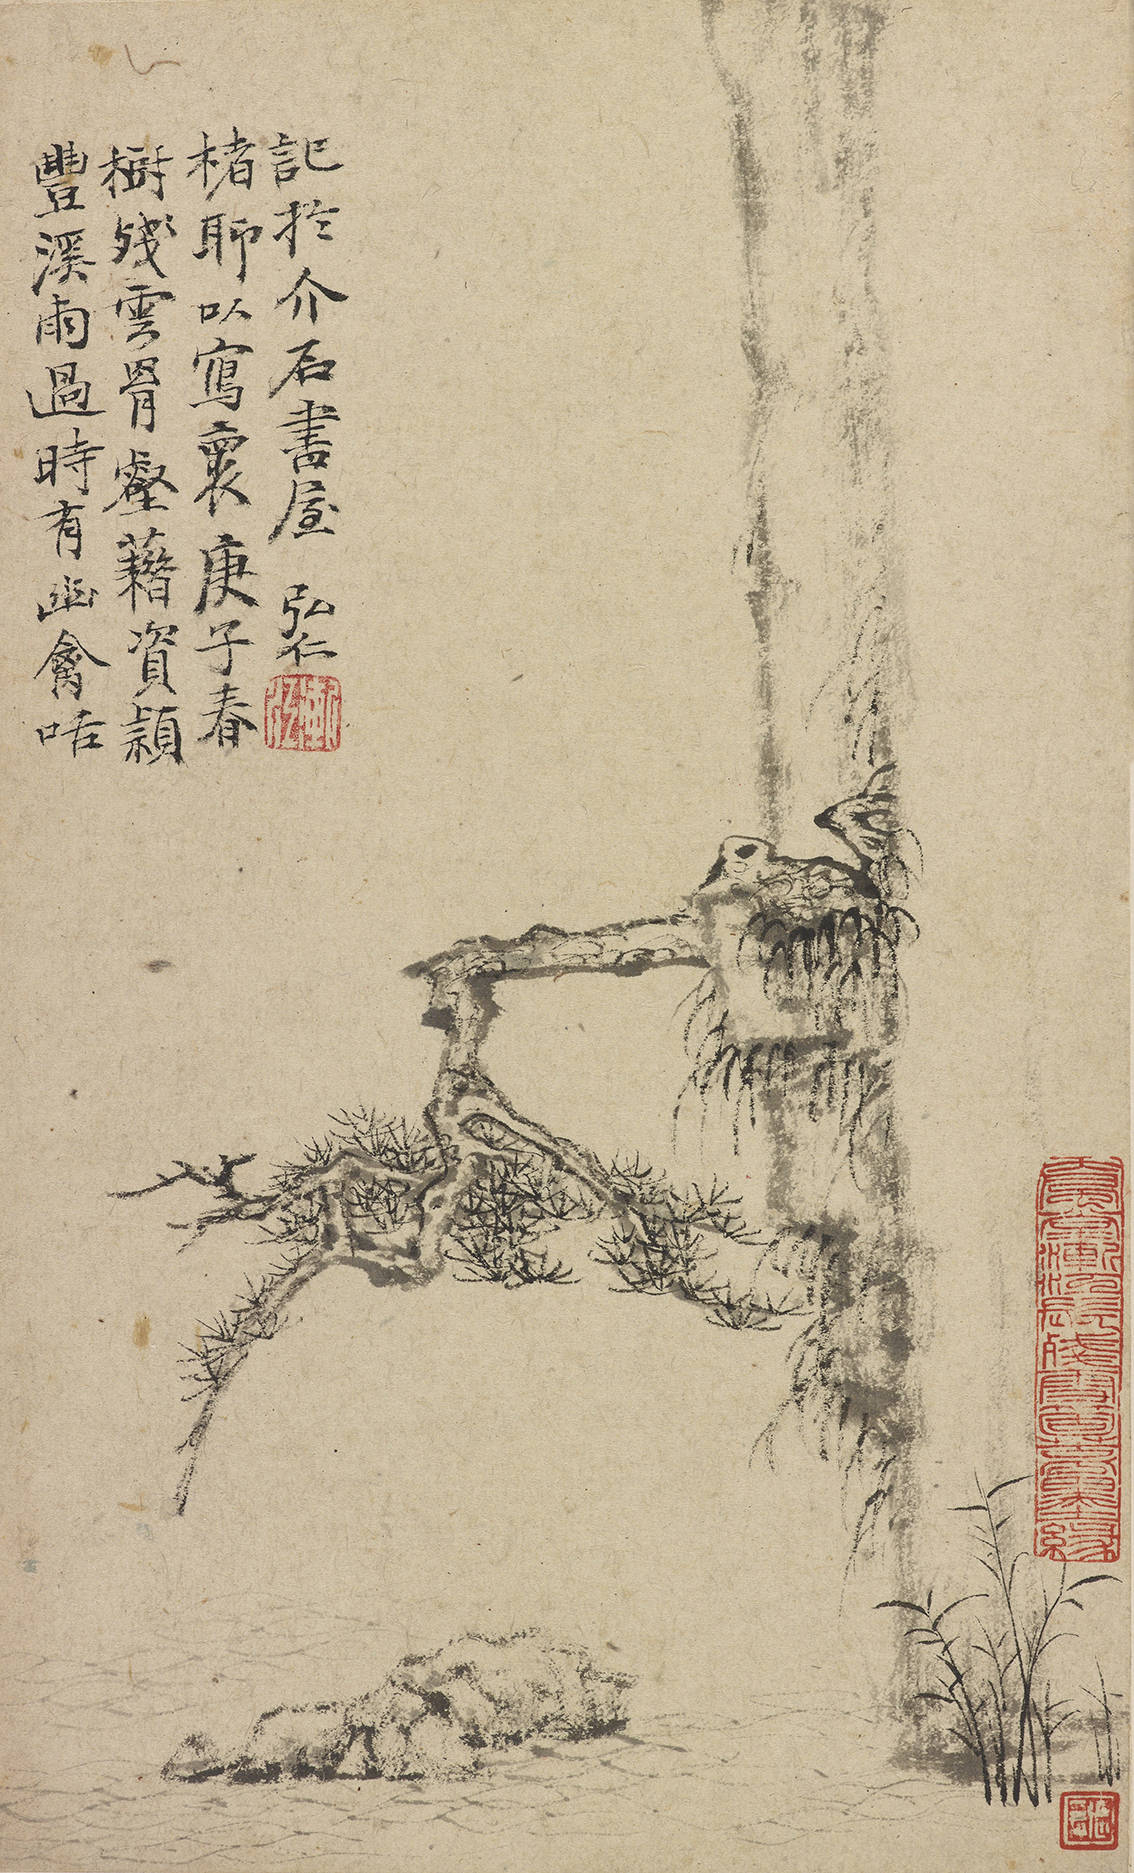 豐溪雨過時有幽禽咶
樹殘雲壑藉資穎
楮聊以寫褱庚子春
記於介石書屋 弘仁
漸江